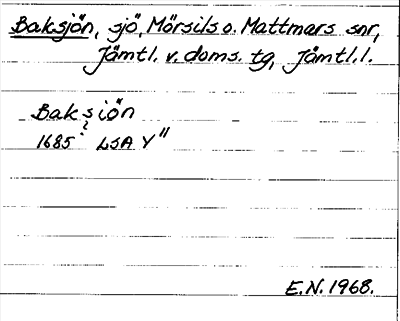 Baksjön, sjö, Mörsils o. Mattmars snr,
Jämtl. v. doms. tg, Jämtl.l.
Baksiön
1685 LSA Y"
E.N. 1968.